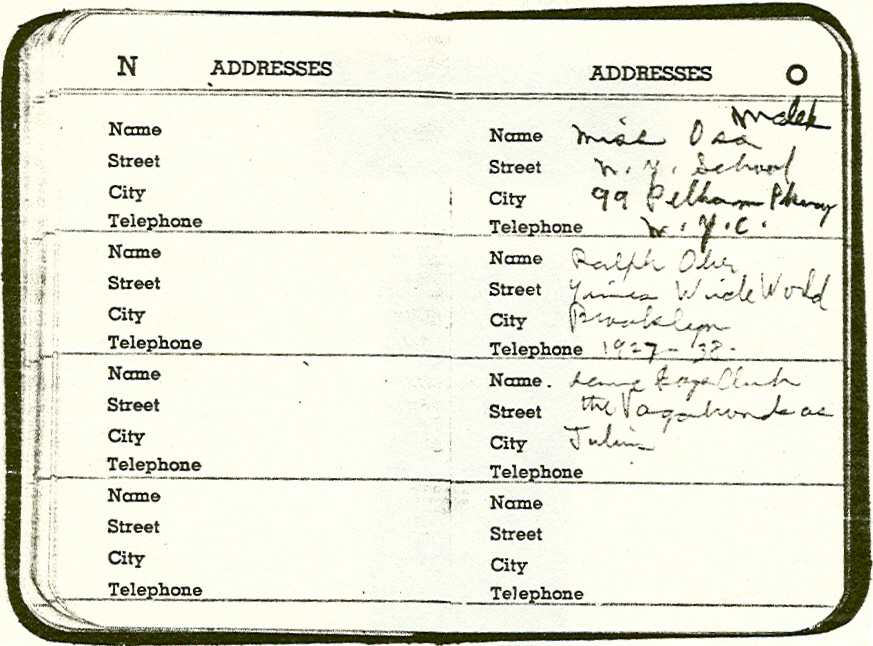 N ADDRESSES
Name
Street
City
Telephone
Name
Street
City
Telephone
Name
Street
City
Telephone
Name
Street
City
Telephone
ADDRESSES O
Name Miss Osa
Street N. Y. School
City 99 Pelham Pkwy
Telephone N. Y. C.
Name Ralph Ober
Street Times Wide World
City Brooklyn
Telephone 1927 - 38 -
Name. Boys Club
Street the Vagabonds as
City Julius
Telephone
Name
Street
City
Telephone